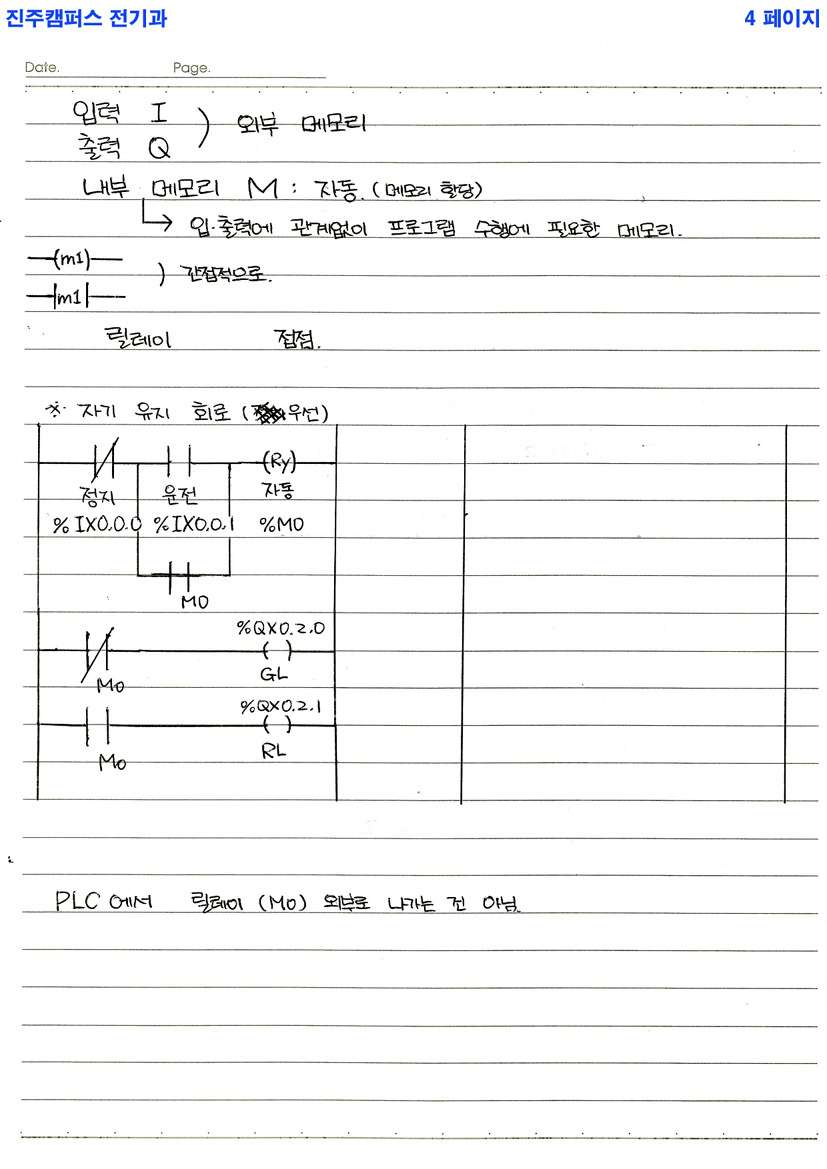 진주캠퍼스 전기과 4 페이지
Date. Page.
입력 I
출력 Q ) 외부 메모리
내부 메모리 M : 자동. (메모리 할당)
↳ 입·출력에 관계없이 프로그램 수행에 필요한 메모리.
(m1)
m1 ) 간접적으로.
릴레이 접점.
※ 자기 유지 회로 (우선)
(Ry)
정지 운전 자동
%IX0.0.0 %IX0.0.1 %M0
M0
%QX0.2.0
( )
GL
M0
%QX0.2.1
( )
RL
M0
PLC에서 릴레이 (M0) 외부로 나가는 건 아님.